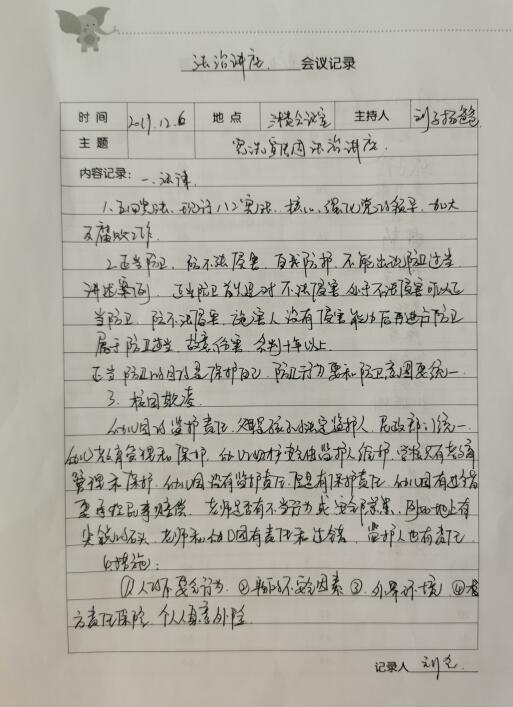 法治讲座 会议记录
时间 2019.12.6 地点 会议室 主持人 刘子扬爸爸
主题 宪法宣传周法治讲座.
内容记录: 一.法律
1.五四宪法、现行八二宪法、核心、强化党的领导、加大
反腐败工作.
2.正当防卫,防不法侵害,自我防护,不能出现防卫过当
讲述案例,正当防卫前提对不法侵害 处于不法侵害可以正
当防卫,防不法侵害,施害人没有侵害能力后再进行防卫
属于防卫过当,故意伤害,会判十年以上.
正当防卫的目的是保护自己,防卫行为要和防卫意图要统一.
3.校园欺凌
幼儿园的监护责任,父母是孩子的法定监护人,民政部门统一.
教育管理和保护,学校只有教育
管理和保护,幼儿园没有监护责任,但是有保护责任,幼儿园有过错
要承担民事赔偿,老师是否有不当行为或安全隐患,例如地上有
尖锐的石头,老师和幼儿园有责任和过错,监护人也有责任.
4.措施:
①人的不安全行为 ②物的不安全因素 ③.外界环境 ④校
方责任保险 个人意外险.
记录人 刘